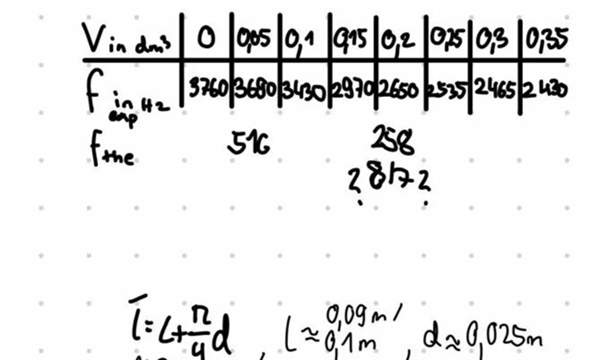 V in dm³ 0 0,05 0,1 0,15 0,2 0,25 0,3 0,35
f in Hz exp 3760 3680 3430 2970 2650 2535 2465 2430
f the 516 258
? 817 ?
l̄ = L + π/4 d , l ≈ 0,09 m / 0,1 m , d ≈ 0,025 m